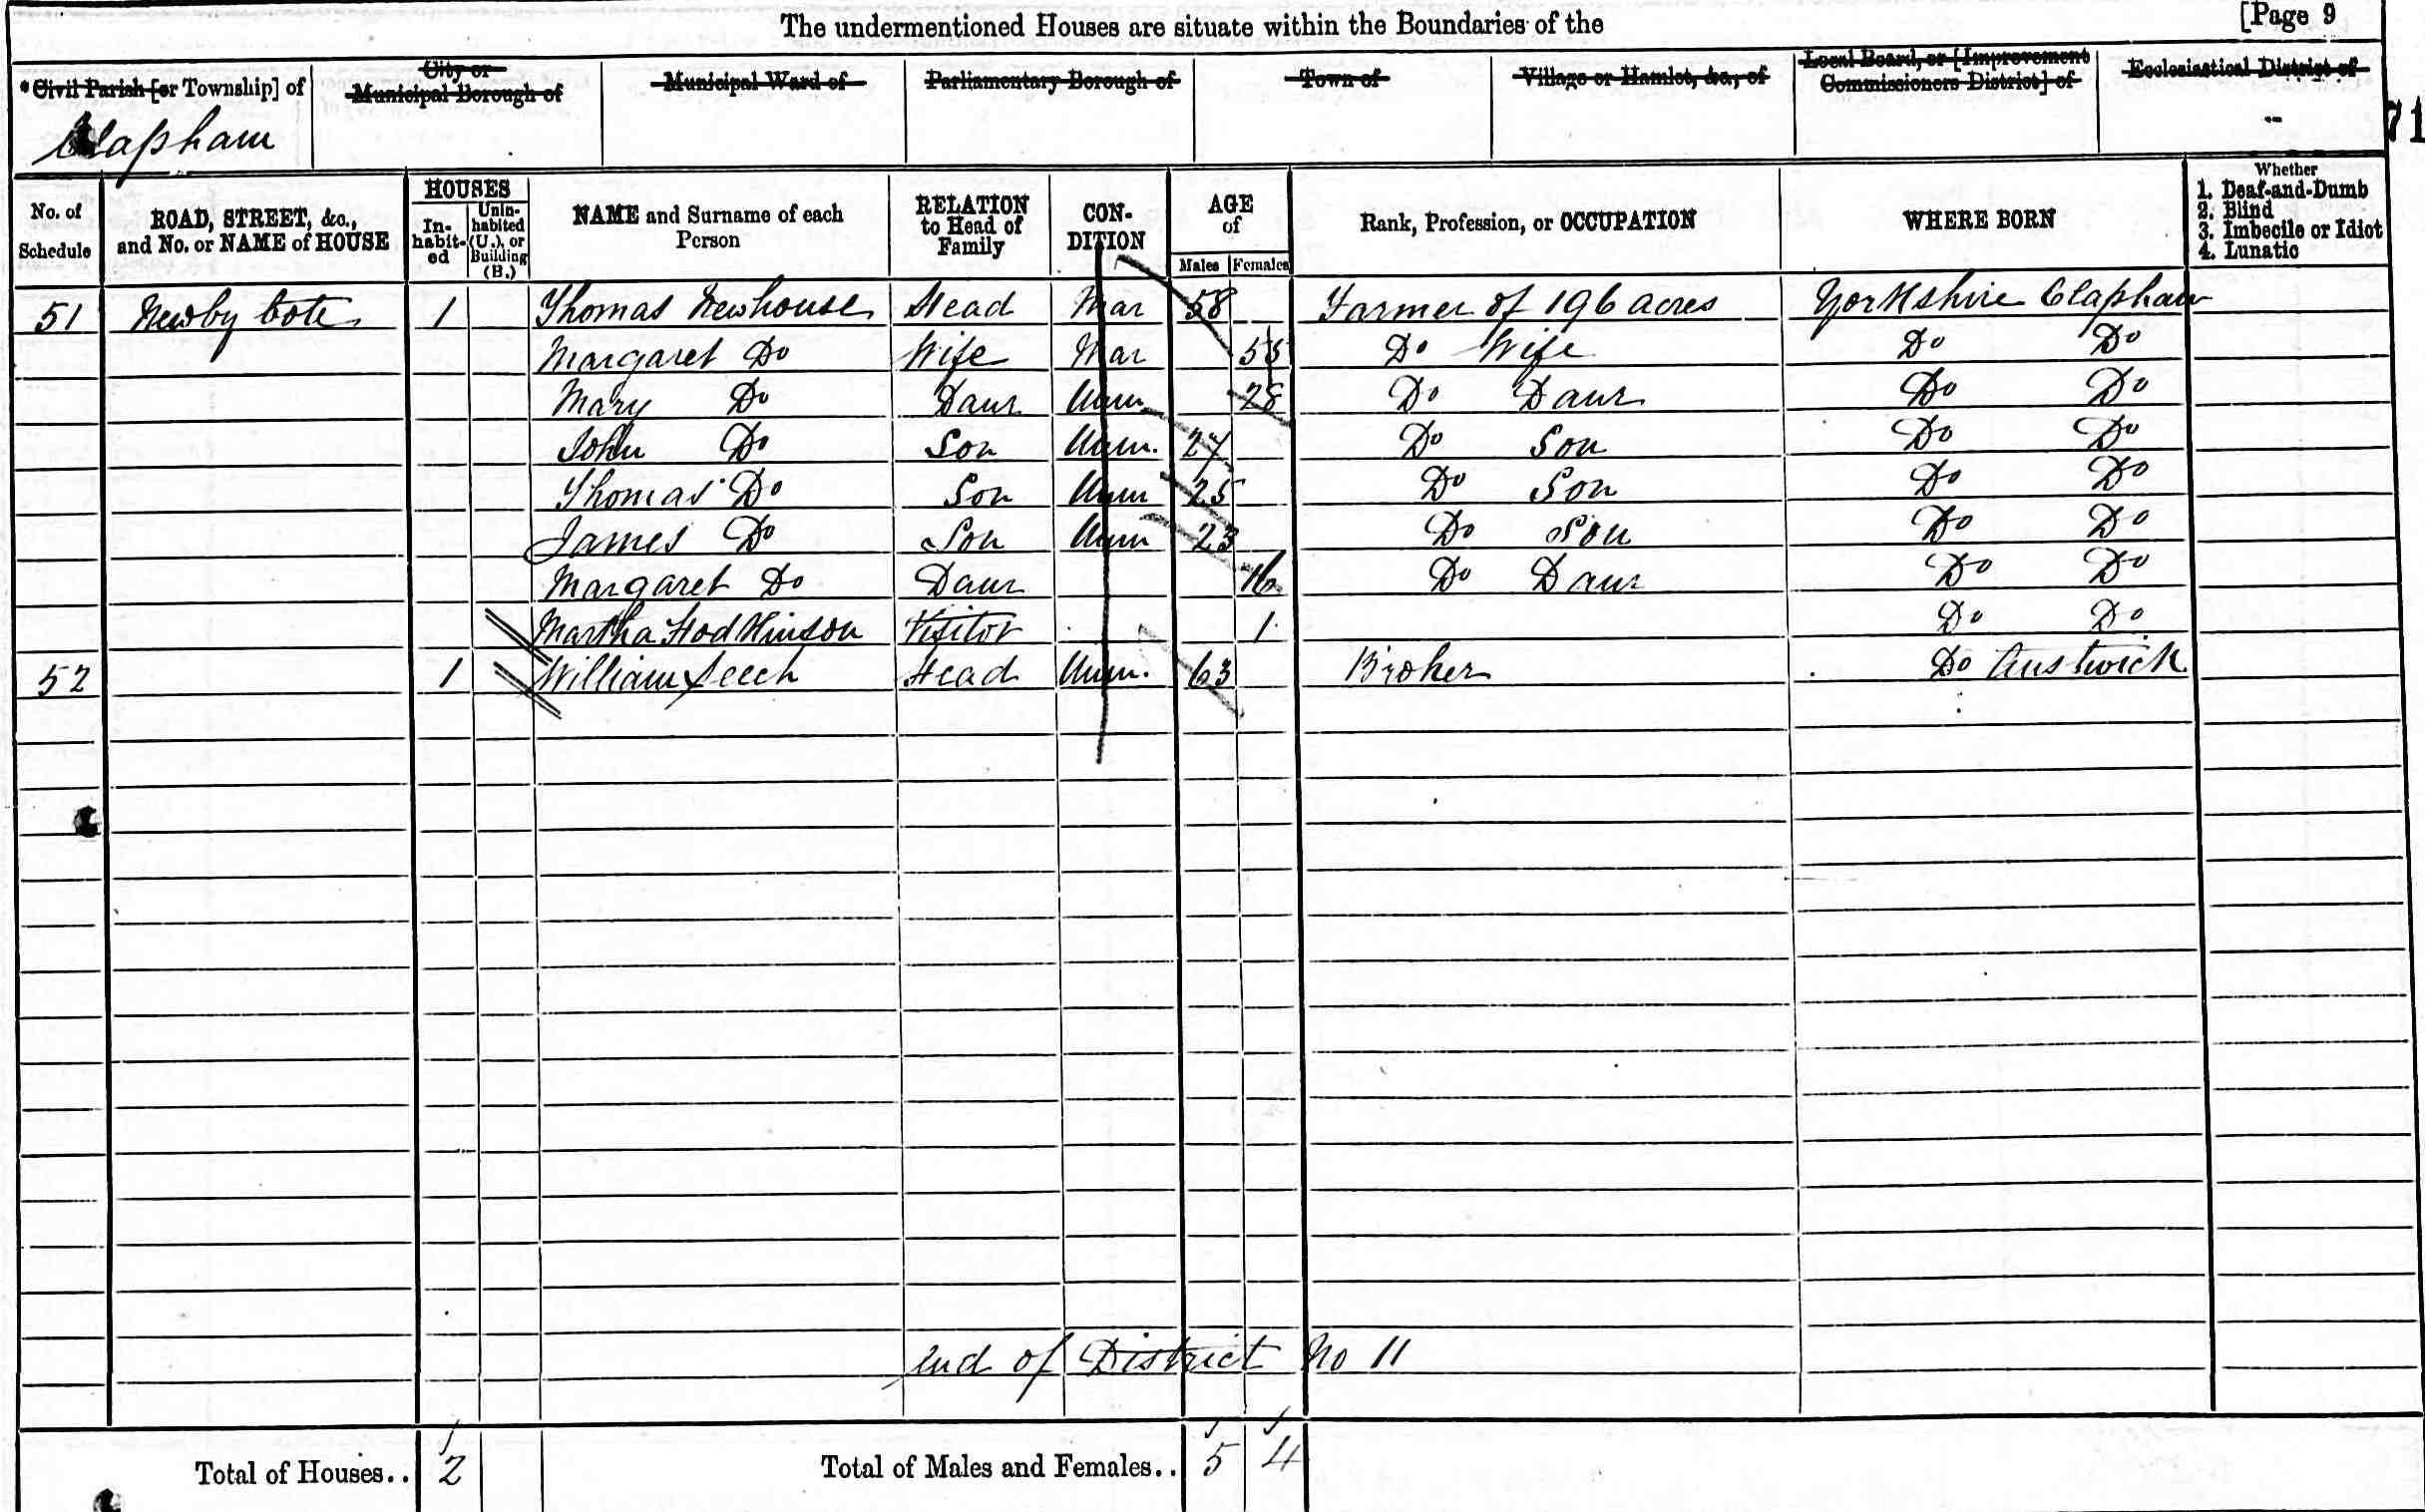 The undermentioned Houses are situate within the Boundaries of the [Page 9
*Civil Parish [or Township] of City or Municipal Borough of Municipal Ward of Parliamentary Borough of Town of Village or Hamlet, &c., of Local Board, or [Improvement Commissioners District] of Ecclesiastical District of
Clapham 71
No. of Schedule ROAD, STREET, &c., and No. or NAME of HOUSE HOUSES Inhabited Uninhabited (U.), or Building (B.) NAME and Surname of each Person RELATION to Head of Family CONDITION AGE of Males Females Rank, Profession, or OCCUPATION WHERE BORN Whether 1. Deaf-and-Dumb 2. Blind 3. Imbecile or Idiot 4. Lunatic
51 Newby Cote 1 Thomas Newhouse Head Mar 58 Farmer of 196 acres Yorkshire Clapham
Margaret Do Wife Mar 55 Do Wife Do Do
Mary Do Daur Unm 28 Do Daur Do Do
John Do Son Unm. 27 Do Son Do Do
Thomas Do Son Unm 25 Do Son Do Do
James Do Son Unm 23 Do Son Do Do
Margaret Do Daur 16 Do Daur Do Do
Martha Hodkinson Visitor 1 Do Do
52 1 William Leech Head Unm. 63 Broker Do Austwick
End of District No 11
Total of Houses.. 2 Total of Males and Females.. 5 4